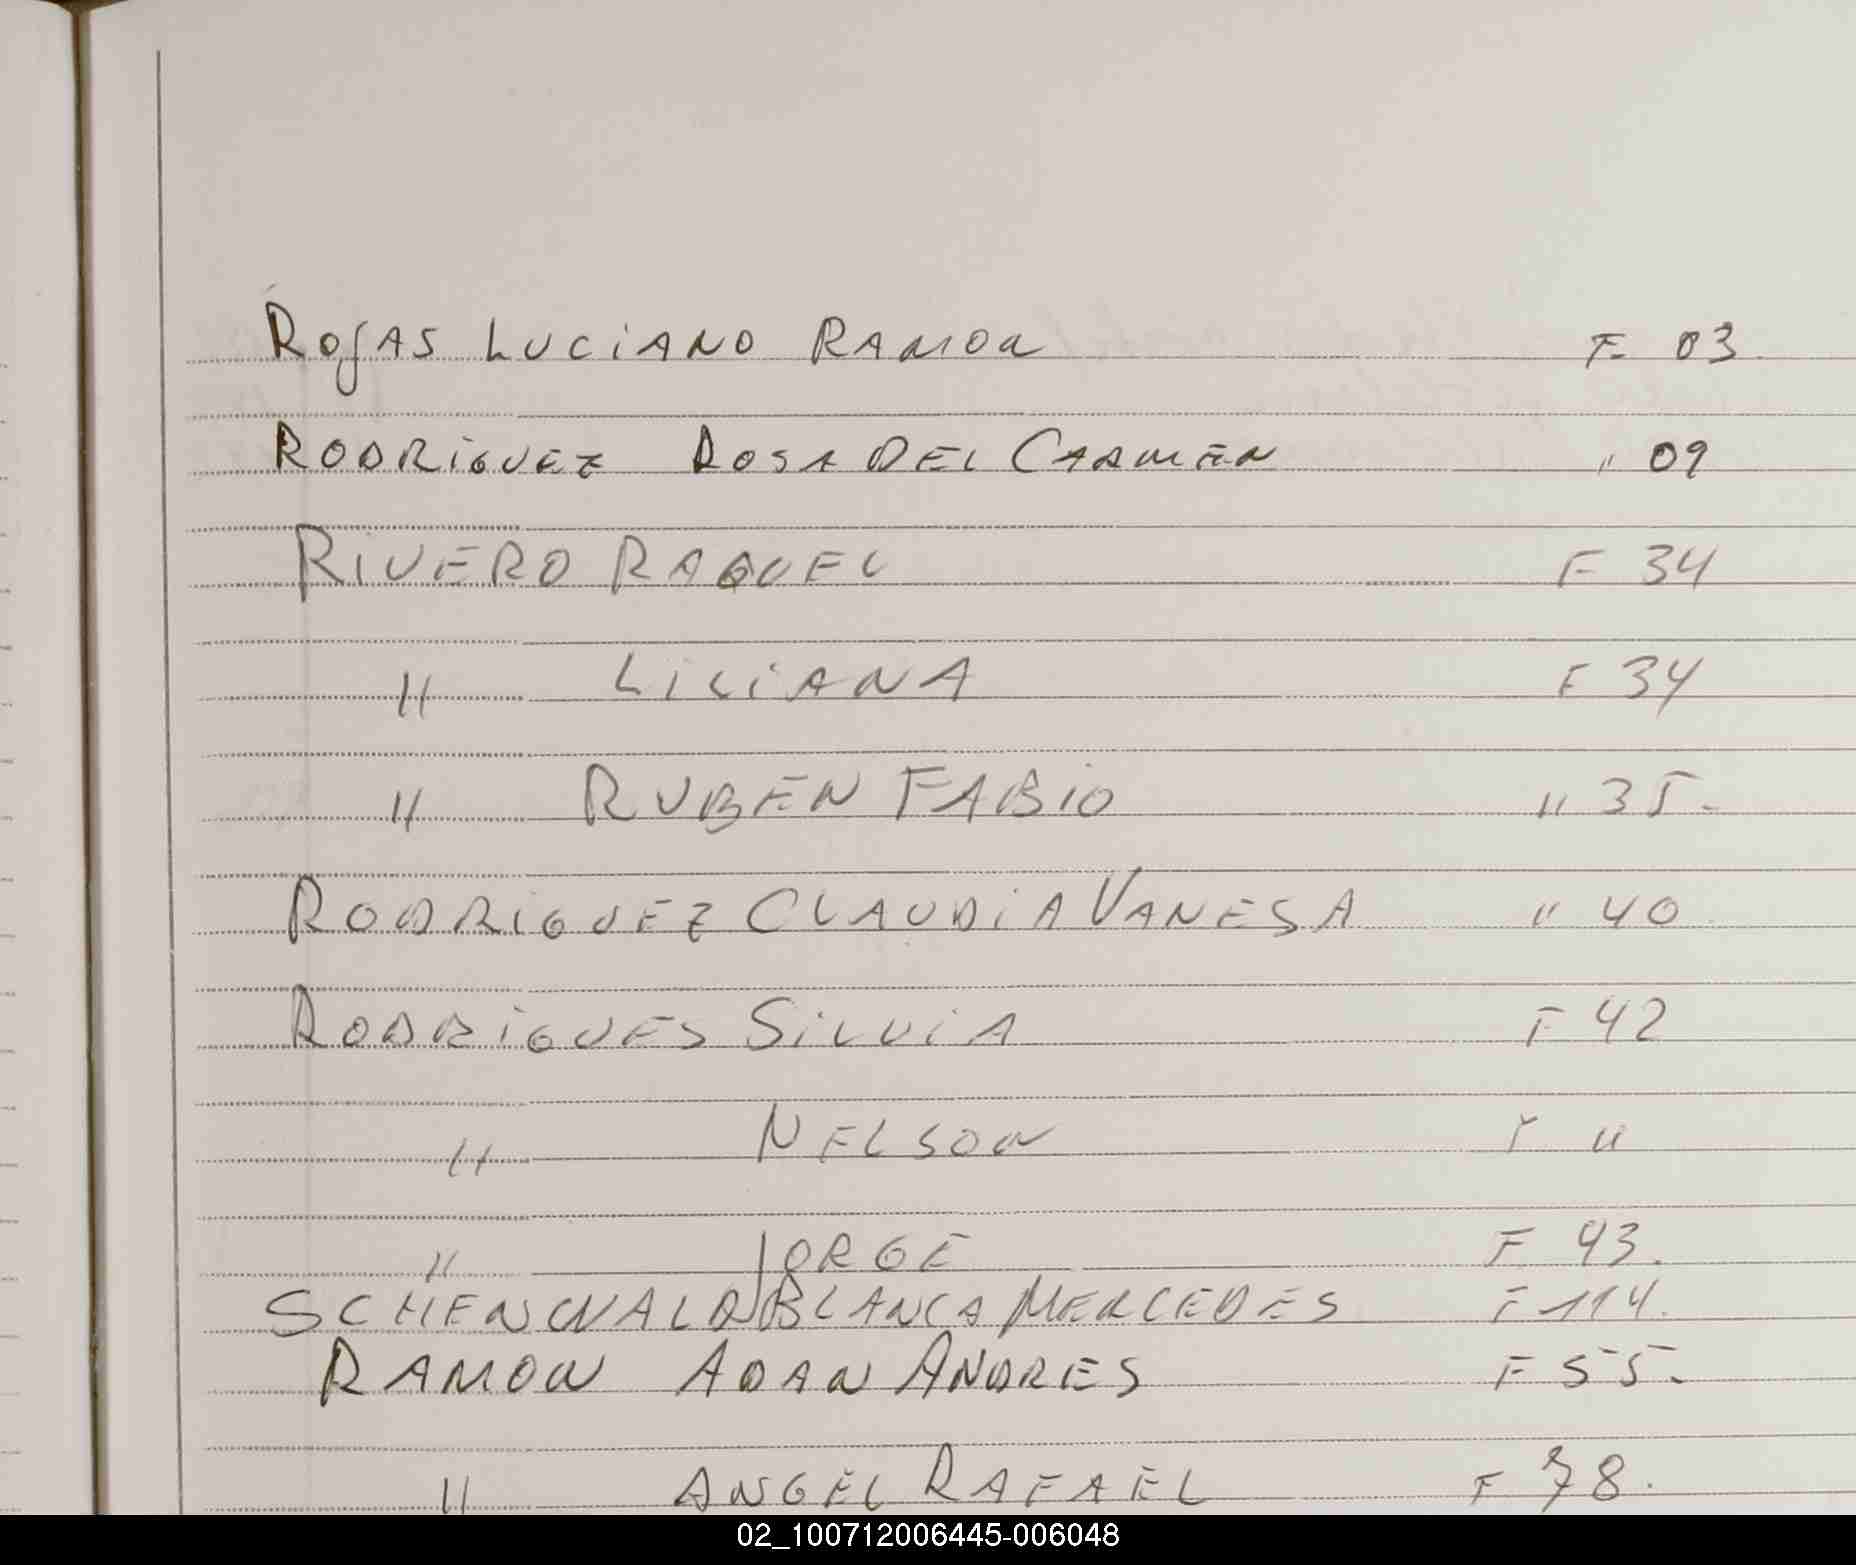 Rojas Luciano Ramon F 03
Rodriguez Rosa del Carmen " 09
Rivero Raquel F 34
" Liliana F 34
" Ruben Fabio " 35.
Rodriguez Claudia Vanesa " 40
Rodrigues Silvia F 42
" Nelson F "
" Jorge F 43.
Schenwald Blanca Mercedes F 114.
Ramon Adan Andres F 55.
" Angel Rafael F 78.
02_100712006445-006048